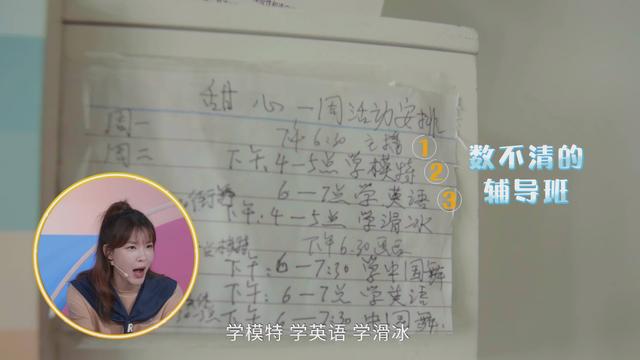 甜心一周活动安排
周一
下午6:30
①
周二 下午4-5点学模特
②
6-7点学英语
③
下午:4-5点 学滑冰
下午6.30
下午:6-7:30 学中国舞
下午:6-7点 学英语
6-7:30 中国舞.
数不清的
辅导班
学模特 学英语 学滑冰